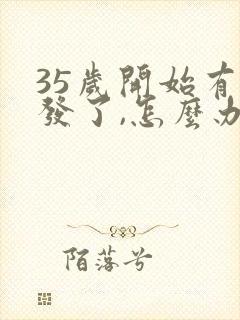 35歲開始有
發了,怎麼办
陌落兮